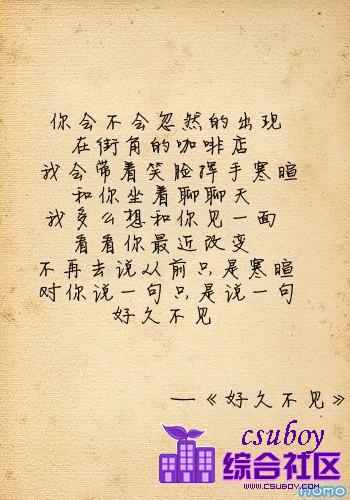 你会不会忽然的出现
在街角的咖啡店
我会带着笑脸挥手寒暄
和你坐着聊聊天
我多么想和你见一面
看看你最近改变
不再去说从前只是寒暄
对你说一句只是说一句
好久不见
—《好久不见》
csuboy
综合社区
WWW.CSUBOY.COM
momo